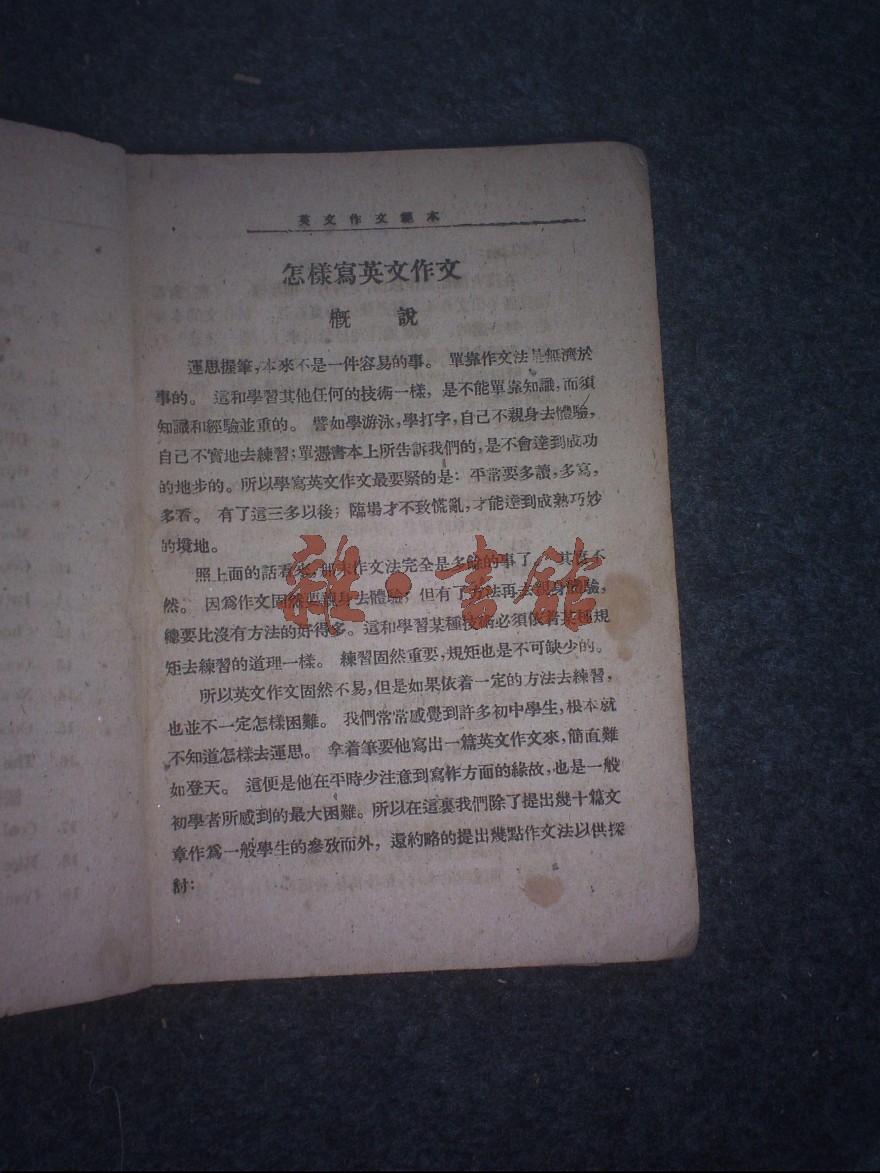 英文作文範本
怎樣寫英文作文
概說
運思握筆,本來不是一件容易的事。 單靠作文法是無濟於
事的。 這和學習其他任何的技術一樣, 是不能單靠知識,而須
知識和經驗並重的。 譬如學游泳,學打字,自己不親身去體驗,
自己不實地去練習;單憑書本上所告訴我們的,是不會達到成功
的地步的。所以學寫英文作文最要緊的是: 平常要多讀,多寫,
多看。 有了這三多以後; 臨場才不致慌亂,才能達到成熟巧妙
的境地。
照上面的話看來,那末作文法完全是多餘的事了, 其實不
然。 因爲作文固然要親身去體驗; 但有了方法再去親身體驗,
總要比沒有方法的好得多。這和學習某種技術必須依着某種規
矩去練習的道理一樣。 練習固然重要,規矩也是不可缺少的。
所以英文作文固然不易,但是如果依着一定的方法去練習,
也並不一定怎樣困難。 我們常常感覺到許多初中學生,根本就
不知道怎樣去運思。 拿着筆要他寫出一篇英文作文來,簡直難
如登天。 這便是他在平時少注意到寫作方面的緣故,也是一般
初學者所感到的最大困難。所以在這裏我們除了提出幾十篇文
章作爲一般學生的參攷而外, 還約略的提出幾點作文法以供探
討:
雜·書館